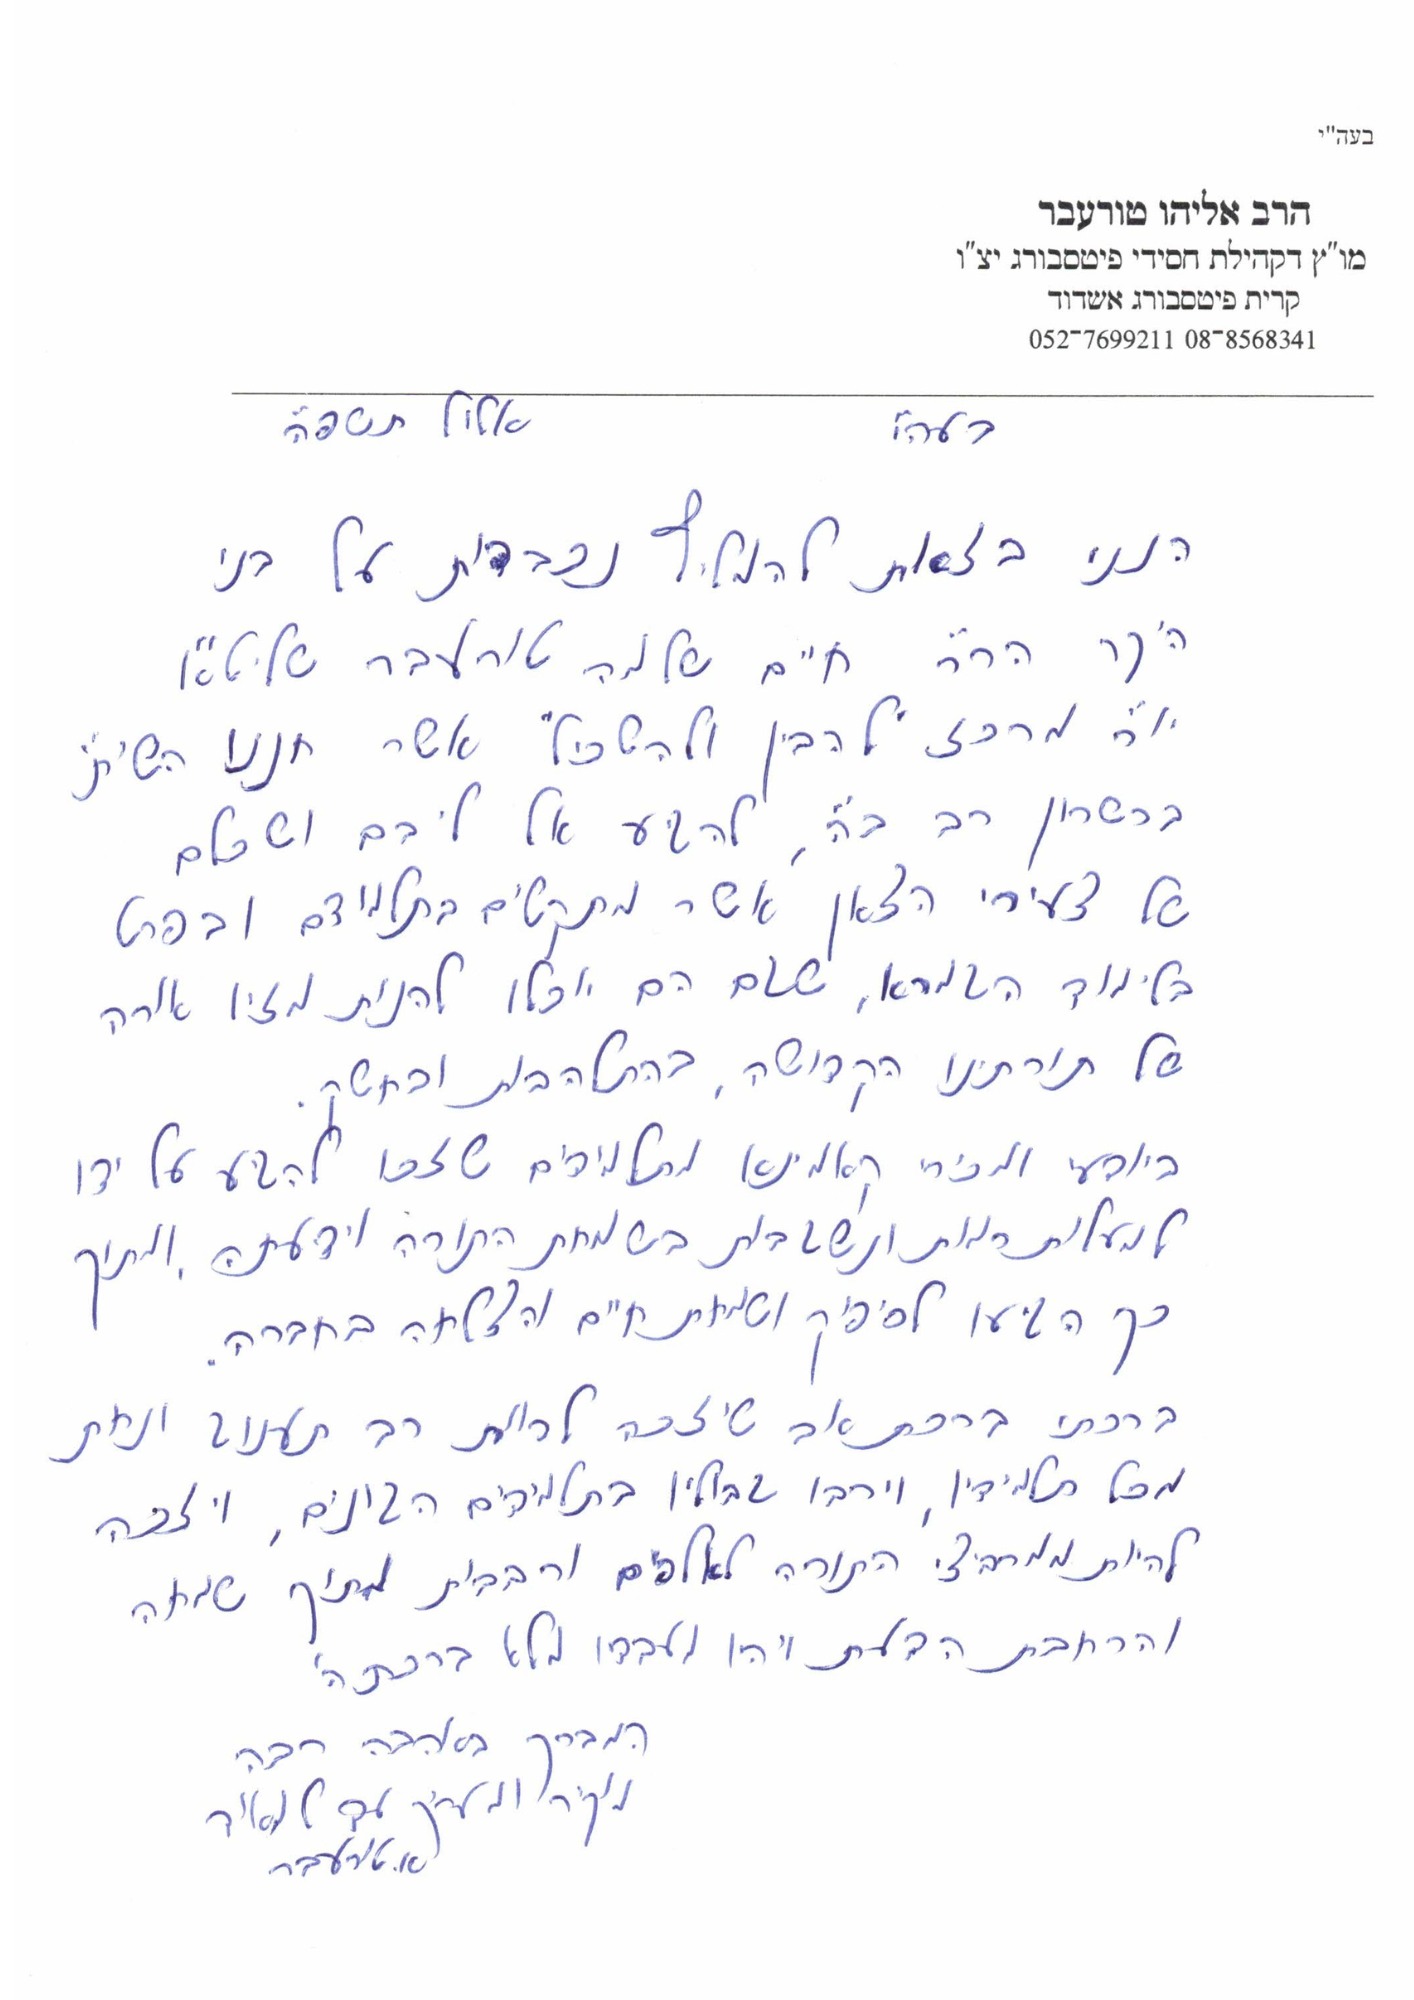 בעה"י
הרב אליהו טורעבר
מו"ץ דקהילת חסידי פיטסבורג יצ"ו
קרית פיטסבורג אשדוד
052-7699211 08-8568341
בעה"י אלול תשפ"ה
הנני בזאת להמליץ נכבדות על בני
היקר הרה"ח חיים שלמה טורעבר שליט"א
יו"ר מרכז "להבין ולהשכיל" אשר חננו השי"ת
בכשרון רב ב"ה, להגיע אל ליבם ושכלם
של צעירי הצאן אשר מתקשים בתלמודם ובפרט
בלימוד הגמרא, שגם הם יוכלו להנות מזיו אורה
של תורתינו הקדושה, בהתלהבות ובחשק.
ביודעי ומכירי קאמינא מתלמידים שזכו להגיע על ידו
למעלות רמות ונשגבות בשמחת התורה וידיעתה, ומתוך
כך הגיעו לסיפוק ושמחת חיים והצלחה בחברה.
ברכתי ברכת אב שיזכה לרוות רב תענוג ונחת
מכל תלמידיו, וירבו גבוליו בתלמידים הגונים, ויזכה
להיות ממרביצי התורה לאלפים ורבבות מתוך שמחה
והרחבת הדעת ויהיו מעבדיו מלא ברכת ה'
המברך באהבה רבה
מוקירו ומעריכו עד למאוד
א. טורעבר